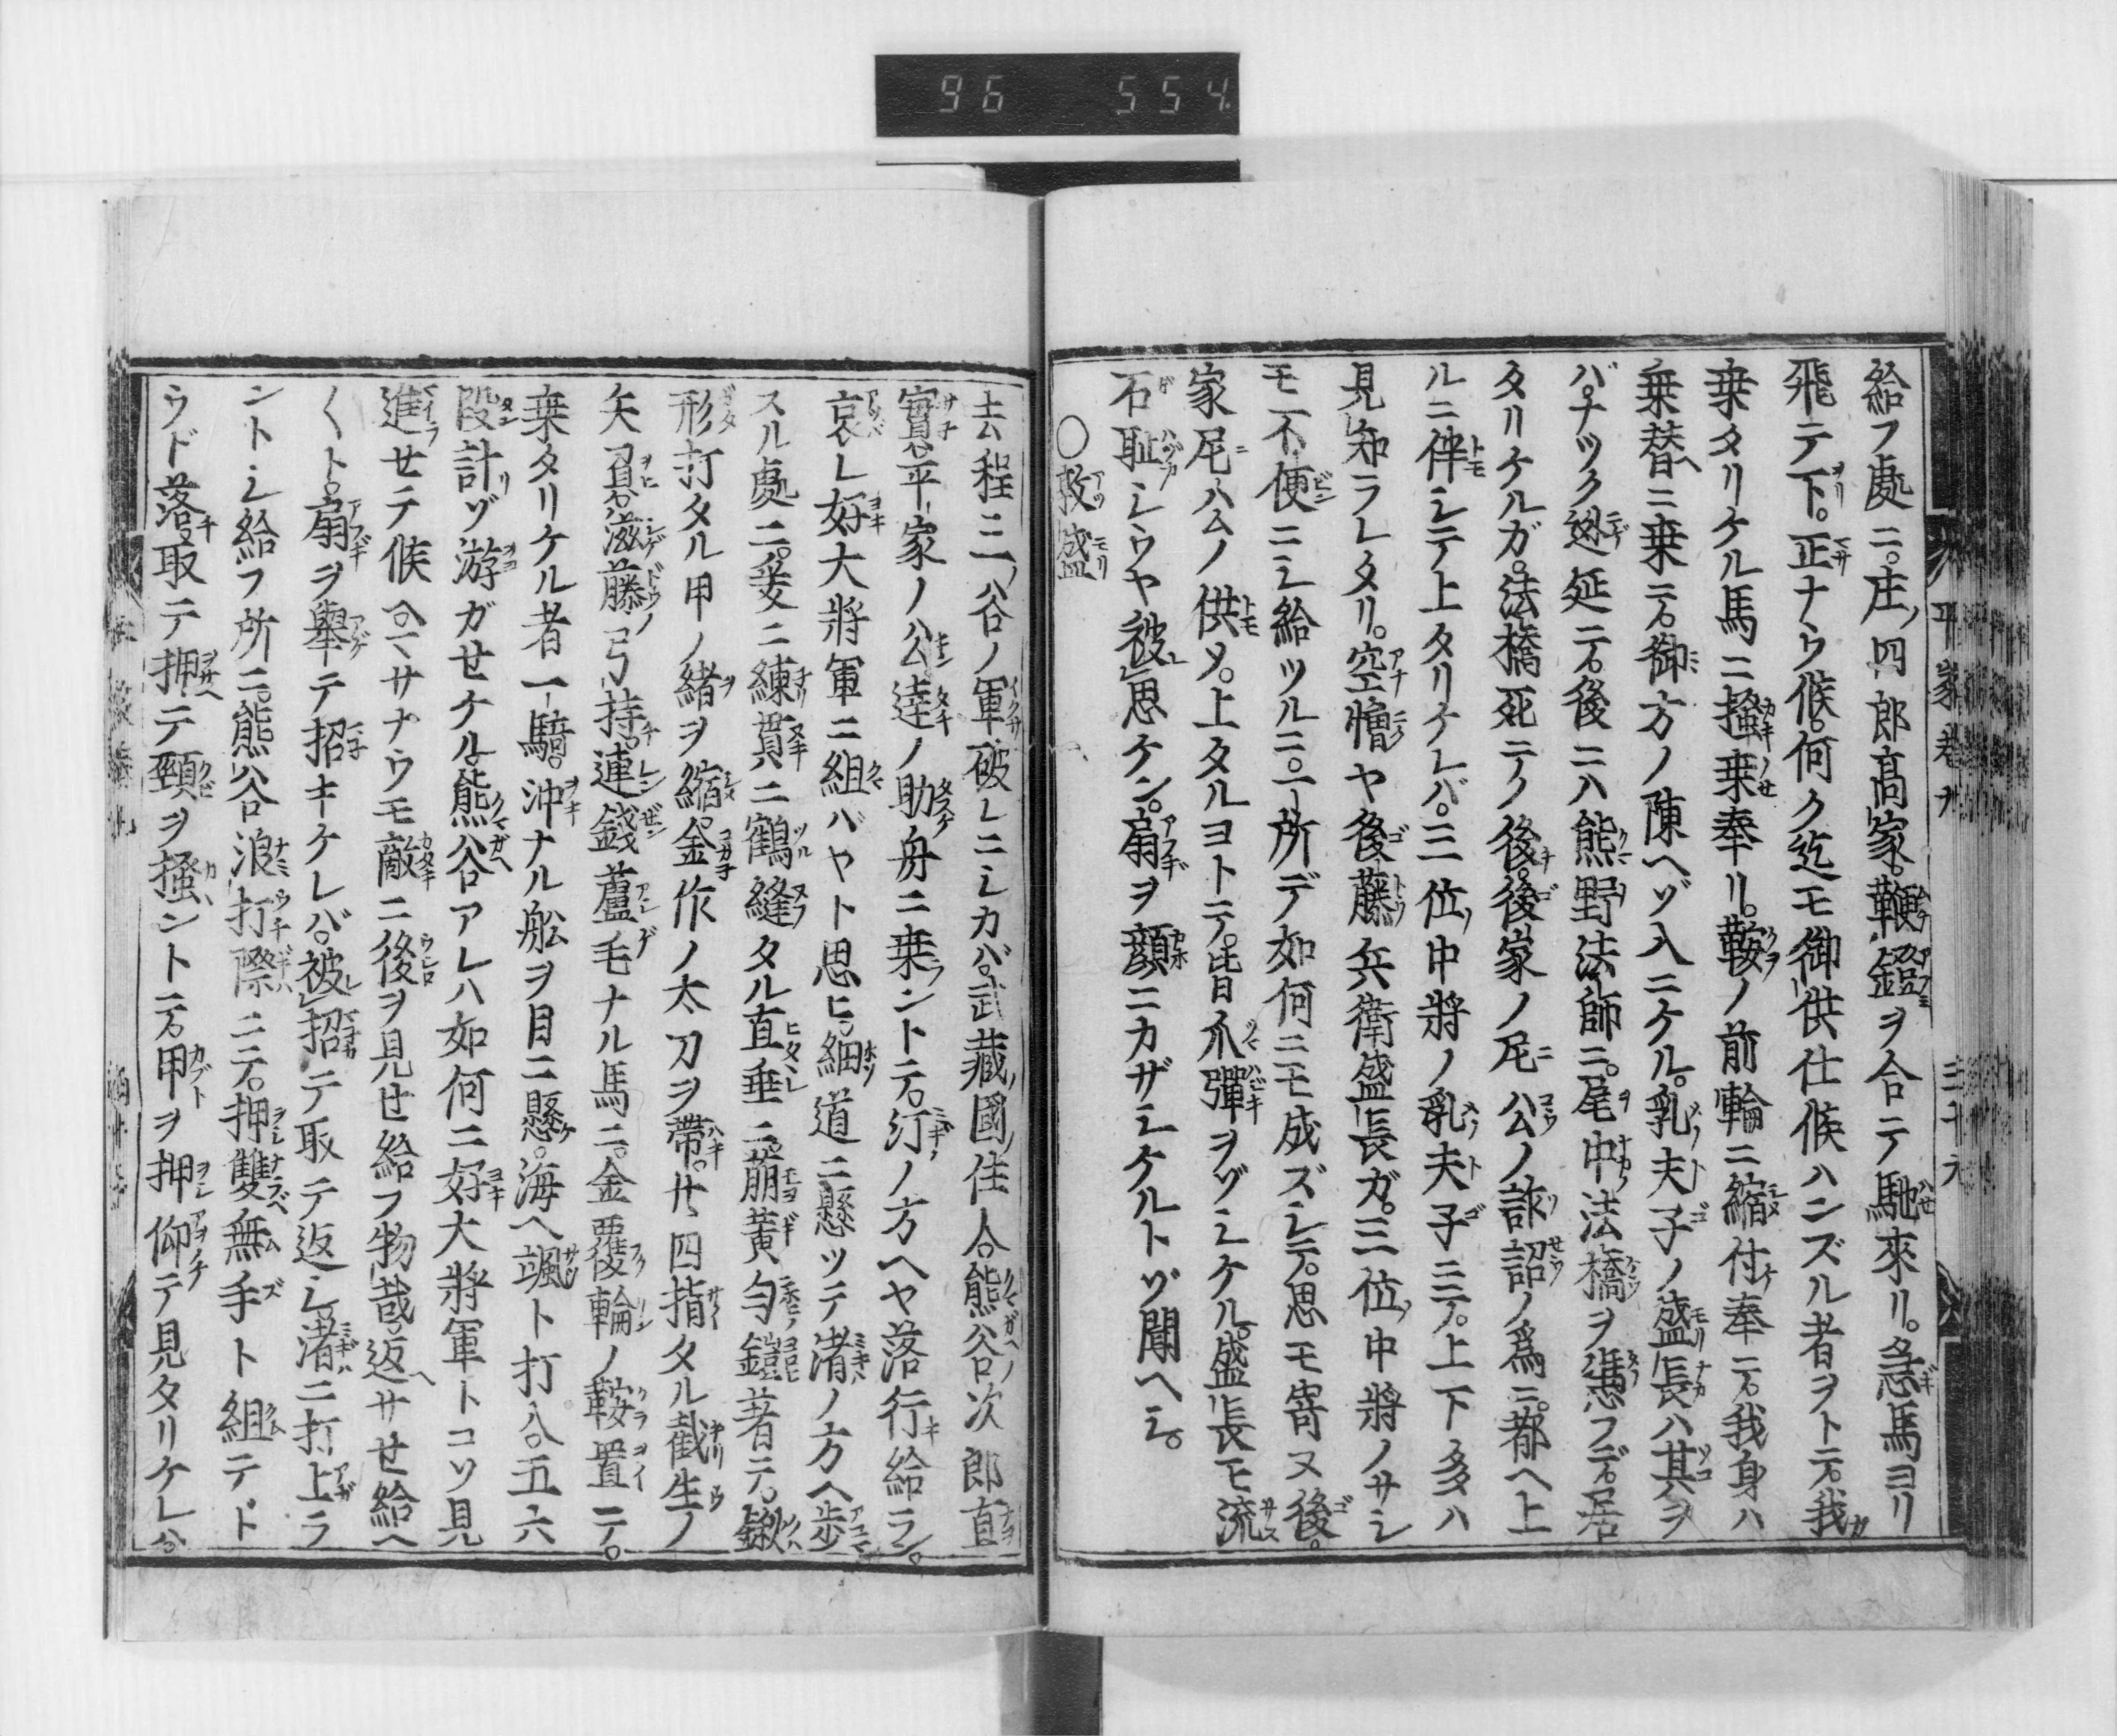 96 554
給フ處ニ。庄ノ四郎髙家。鞭鐙ヲ合テ馳來リ。急馬ヨリ
飛テ下。正ナウ候。何ク迄モ御供仕候ハンズル者ヲトテ。我
乗タリケル馬ニ掻乗奉リ。鞍ノ前輪ニ縮付奉テ。我身ハ
乗替ニ乗テ。御方ノ陳ヘゾ入ニケル。乳夫子ノ盛長ハ其ヲ
バ。ナツク迯延テ。後ニハ熊野法師ニ。尾中法橋ヲ憑フデ居
タリケルガ。法橋死テノ後。後家ノ尼公ノ訴詔ノ爲ニ。都ヘ上
ルニ伴シテ上タリケレバ。三位中將ノ乳夫子ニテ。上下多ハ
見知ラレタリ。空憎ヤ後藤兵衛盛長ガ。三位ノ中將ノサシ
モ不便ニシ給ツルニ。一所デ如何ニモ成ズシテ。思モ寄ヌ後
家尼ハムノ供ソ。上タルヨトテ。皆爪彈ヲゾシケル。盛長モ流
石耻シウヤ被思ケン。扇ヲ顔ニカザシケルトゾ聞ヘシ。
〇敦盛
平家巻九 三十六
去程ニ一ノ谷ノ軍破レニシカバ。武藏國ノ住人。熊谷ノ次郎直
實。平家ノ公達ノ助舟ニ乗ントテ。汀ノ方ヘヤ落行給ラン。
哀レ好大將軍ニ組バヤト思ヒ。細道ニ懸ツテ渚ノ方ヘ歩
スル處ニ。爰ニ練貫ニ鶴縫タル直垂ニ。萠黄匂鎧著テ。鍬
形打タル甲ノ緒ヲ縮。金作ノ太刀ヲ帶。廿四指タル截生ノ
矢負。滋藤ノ弓持。連錢蘆毛ナル馬ニ。金覆輪ノ鞍置テ。
乗タリケル者一騎。沖ナル舩ヲ目ニ懸。海ヘ颯ト打入。五六
段計ゾ游ガセケル。熊谷アレハ如何ニ好大將軍トコソ見
進セテ候ヘ。マサナウモ敵ニ後ヲ見セ給フ物哉。返サセ給ヘ
〱ト。扇ヲ擧テ招キケレバ。被招テ取テ返シ。渚ニ打上ラ
ントシ給フ所ニ。熊谷浪打際ニテ。押雙無手ト組テド
ウド落。取テ押ヘテ頸ヲ掻ントテ。甲ヲ押仰テ見タリケレハ。